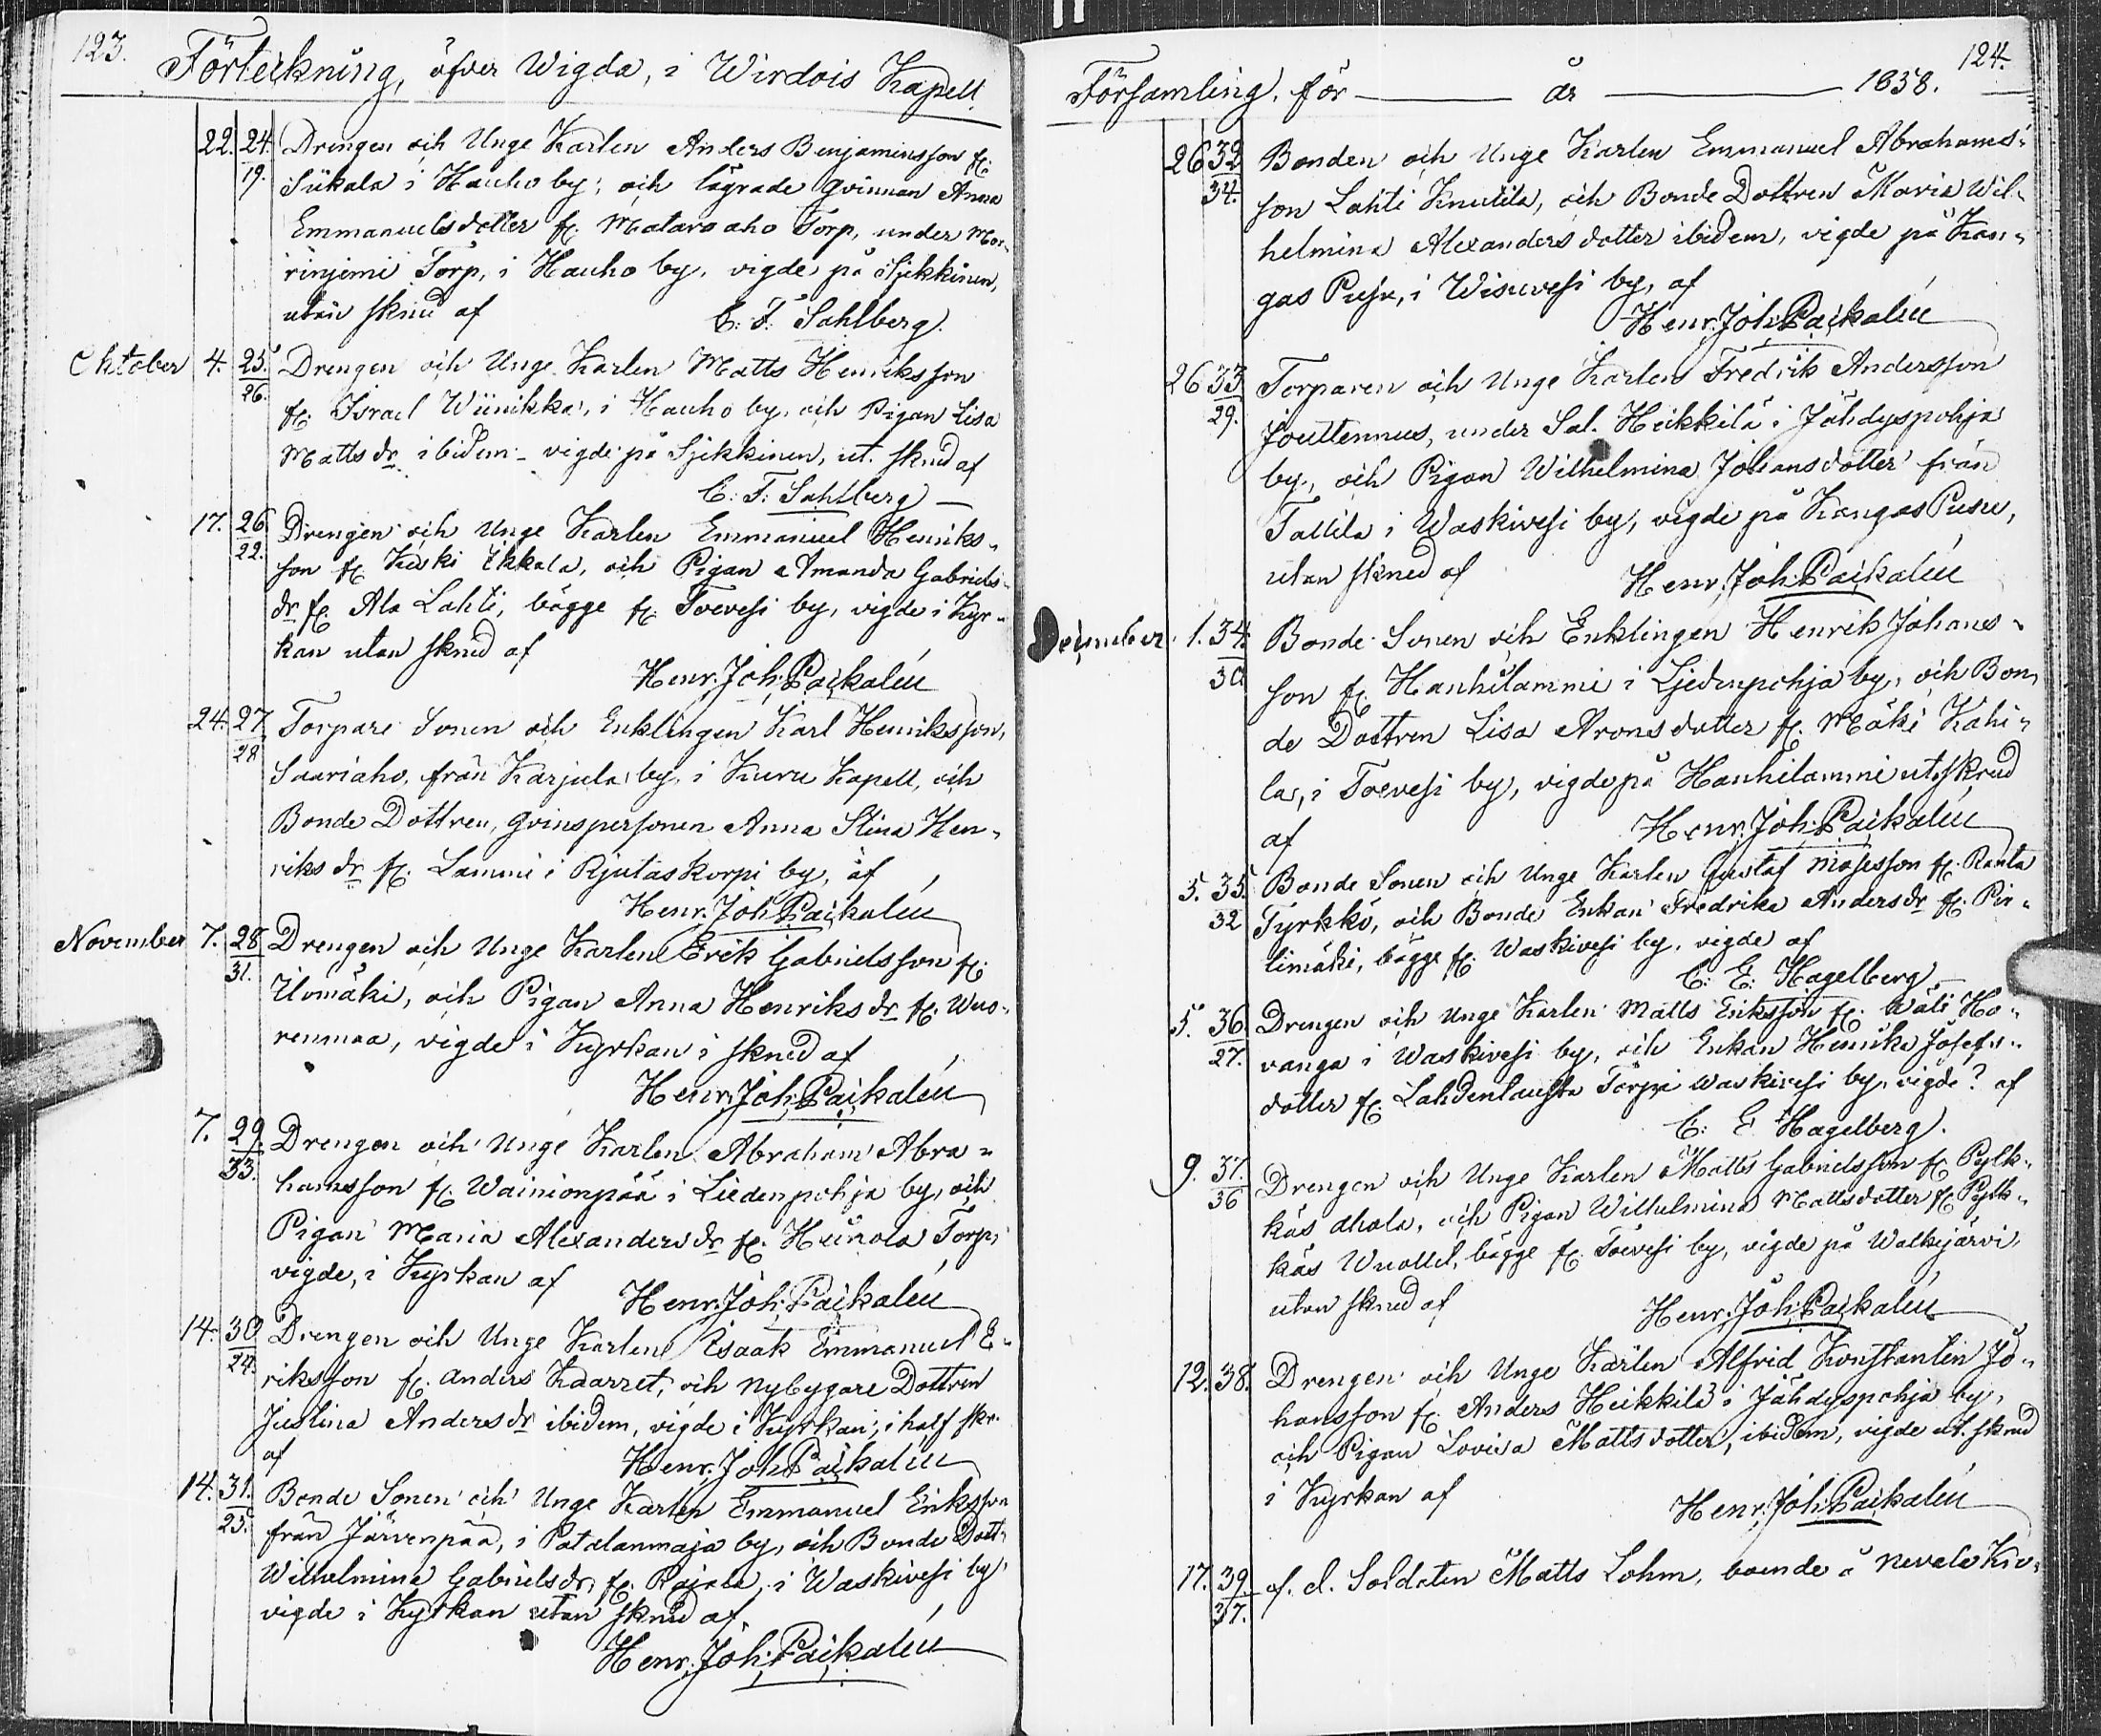 123. Förteckning, öfver Wigda, i Wirdois Kapell
22. 24. Drengen och Unge Karlen Anders Benjaminsson fr.
19. Siikala i Hauho by, och lägrade qvinnan Anna
Emmanuelsdotter fr. Mataraaho Torp, under Mar-
rinjemi Torp, i Hauho by, vigde på Sjekkinen,
utan skrud af C: F: Sahlberg.
Oktober 4. 25. Drengen och Unge Karlen Matts Henriksson
26. fr. Israel Wiinikka, i Hauho by, och Pigan Lisa
Matts dr. ibidem - vigde på Sjekkinen, ut. skrud af
C: F: Sahlberg
17. 26. Drengen och Unge Karlen Emmanuel Henriks-
22. son fr. Keski Ikkala, och Pigan Amanda Gabriels-
dr fr. Ala Lahti, bägge fr. Toevesi by, vigde i Kyr-
kan utan skrud af
Henr. Joh. Paikalén
24. 27. Torpare Sonen och Enklingen Karl Henriksson,
28 Saariaho, från Karjula by, i Kuru Kapell, och
Bonde Dottren, qvinspersonen Anna Stina Hen-
riks dr fr. Lammi i Rjutaskorpi by, af
Henr. Joh. Paikalén
November 7. 28. Drengen och Unge Karlen Erik Gabrielsson fr.
31. Ilomäki, och Pigan Anna Henriks dr fr. Wuo-
renmaa, vigde i Kyrkan i skrud af
Henr. Joh. Paikalén
7. 29. Drengen och Unge Karlen Abraham Abra-
33. hamsson fr. Wainionpää i Liedenpohja by, och
Pigan Maria Alexanders dr fr. Heinola Torp,
vigde, i Kyrkan af
Henr. Joh. Paikalén
14. 30 Drengen och Unge Karlen Isaak Emmanuel E-
24. riksson fr. Anders Kaarret, och nybygare Dottren
Justina Anders dr ibidem, vigde i Kyrkan, i half skr.
af Henr. Joh. Paikalén
14. 31. Bonde Sonen och Unge Karlen Emmanuel Eriksson
25. från Järvenpää, i Patalanmaja by, och Bonde Dott.
Wilhelmina Gabriels dr, fr. Rajala, i Waskivesi by
vigde i Kyrkan utan skrud af
Henr. Joh. Paikalén
Församling, för år 1858. 124.
26 32 Bonden och Unge Karlen Emmanuel Abrahams-
34. son Lahti Knutila, och Bonde Dottren Maria Wil-
helmina Alexanders dotter ibidem, vigde på Kan-
gas Pusu, i Wisuvesi by, af
Henr. Joh. Paikalén
26 33 Torparen och Unge Karlen Fredrik Andersson
29. Jouttennus, under Sal. Heikkilä i Jähdyspohja
by, och Pigan Wilhelmina Johansdotter från
Tallila i Waskivesi by, vigde på Kangas Pusu,
utan skrud af Henr. Joh. Paikalén
December 1. 34. Bonde Sonen och Enklingen Henrik Johans-
30. son fr. Hanhilammi i Ljedenpohja by, och Bon-
de Dottren Lisa Aronsdotter fr. Mäki Kahi-
la, i Toevesi by, vigde på Hanhilammi ut. skrud
af Henr. Joh. Paikalén
5. 35. Bonde Sonen och Unge Karlen Gustaf Mosesson fr. Ranta
32 Tyrkkö, och Bonde Enkan Fredrika Anders dr fr. Pir-
limäki, bägge fr. Waskivesi by, vigde af
C: E: Hagelberg
5. 36. Drengen och Unge Karlen Matts Eriksson fr. Wäli Ho-
27. vanga i Waskivesi by, och Enkan Henrika Josefs-
dotter fr. Lahdenlausta Torp i Waskivesi by, vigde? af
C: E Hagelberg.
9. 37. Drengen och Unge Karlen Matts Gabrielsson fr. Pylk-
36 käs ahala, och Pigan Wilhelmina Mattsdotter fr. Pylk-
käs Wuollet, bägge fr. Toevesi by, vigde på Walkejärvi,
utan skrud af Henr. Joh. Paikalén
12. 38. Drengen och Unge Karlen Alfrid Konstantin Jo-
hansson fr. Anders Heikkilä i Jähdyspohja by,
och Pigan Lovisa Mattsdotter, ibidem, vigde ut. skrud
i Kyrkan af Henr. Joh. Paikalén
17. 39. af. d. Soldaten Matts Lohm, boende å Nevala Kiv-
37.